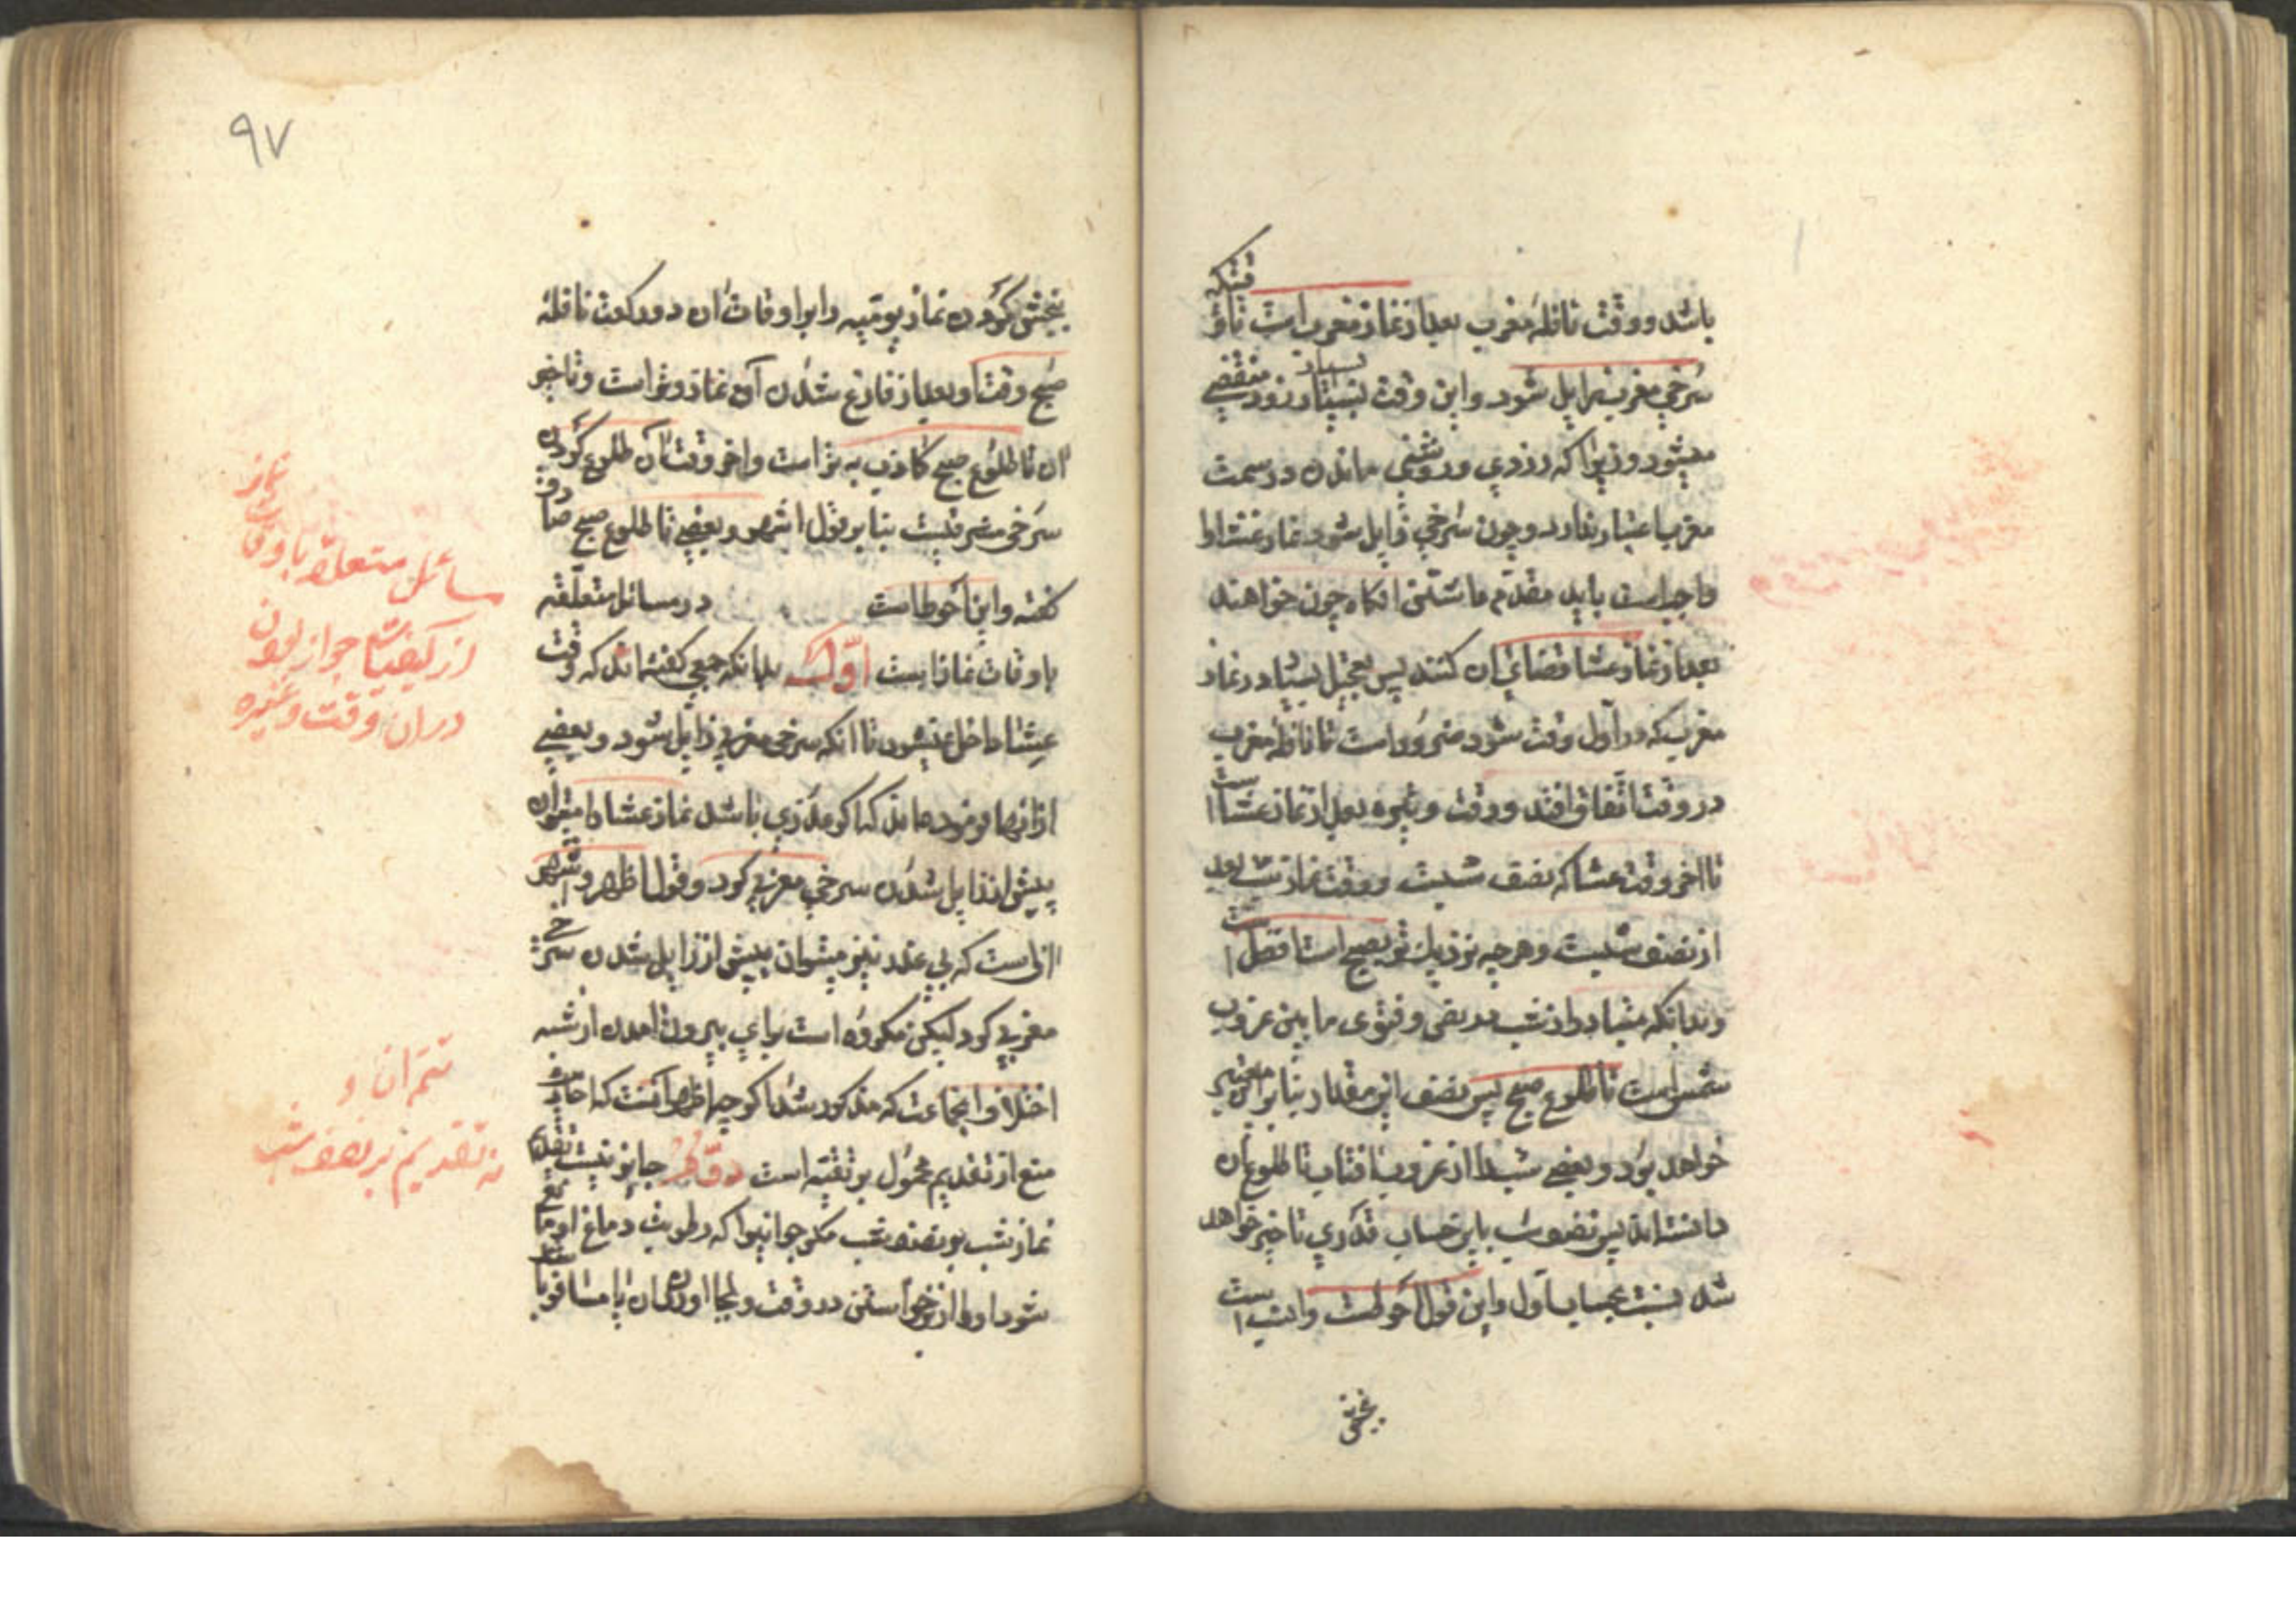 باشد و وقت نافلهٔ مغرب بعد از نماز مغرب است تا وقتیکه
سرخی مغرب زایل شود و این وقت بسیار زود منقضی
میشود زیرا که زردی و روشنی ماندن در سمت
مغرب اعتبار ندارد و چون سرخی زایل شود نماز عشا را
واجبست باید مقدم داشتن انکاه چون خواهند
بعد از نماز عشا قضای ان کنند پس تعجیل بسیار در نماز
مغرب که در اول وقت شود ضرور است تا نافله مغرب
در وقت اتفاق افتد و وقت وتیره بعد از نماز عشا است
تا اخر وقت عشا که نصف شبست و وقت نماز شب بعد
از نصف شبست و هر چه نزدیک تر بصبح است افضل است
و بدانکه متبادر از شب در نص و فتوی ما بین غروب
شمس است تا طلوع صبح پس نصف این مقدار بنا بر این معتبر
خواهد بود و بعضی شب را از غروب افتاب تا طلوع ان
دانسته اند پس نصف شب باین حساب قدری تاخیر خواهد
شد نسبت بحساب اول و این قول احوطست وانسب است
٩٧
کردن نماز یومیه را بر اوقات ان دو رکعت نافلهٔ
صبح وقت او بعد از فارغ شدن آن نماز وتر است و تاخیر
ان تا طلوع صبح کاذب بهتر است و اخر وقت آن طلوع کردن
سرخی مشرقیست بنا بر قول اشهر و بعضی تا طلوع صبح صادق
گفته و این احوط است در مسائل متعلقه
باوقات نمازهاست اول بدانکه جمعی گفته اند که وقت
عشا داخل نمیشود تا انکه سرخی مغربی زایل شود و بعضی
از انها فرموده اند که اگر عذری باشد نماز عشا را میتوان
پیش از زایل شدن سرخی مغربی کرد و قول اظهر و اشهر
انست که بی عذر نیز میتوان پیش از زایل شدن سرخی
مغربی کرد لیکن مکروه است برای بیرون امدن از شبه
اختلاف انجماعت که مذکور شد اگر چه اظهر انست که احادیث
منع از تقدیم محمول بر تقیه است دوم جایز نیست تقدیم
نماز شب بر نصف شب مکر جوانیرا که رطوبت دماغ او مانع
شود او را از برخواستن در وقت و بجا اوردن ان یا مسافر با
مسائل متعلقه باوقات نماز
از کیفیات جواز بودن
در ان وقت و غیره
تتمه ان و
نه تقدیم بر نصف شب